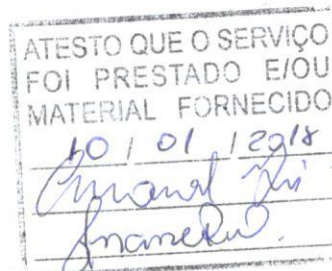 ATESTO QUE O SERVIÇO
FOI PRESTADO E/OU
MATERIAL FORNECIDO
10 / 01 / 2018